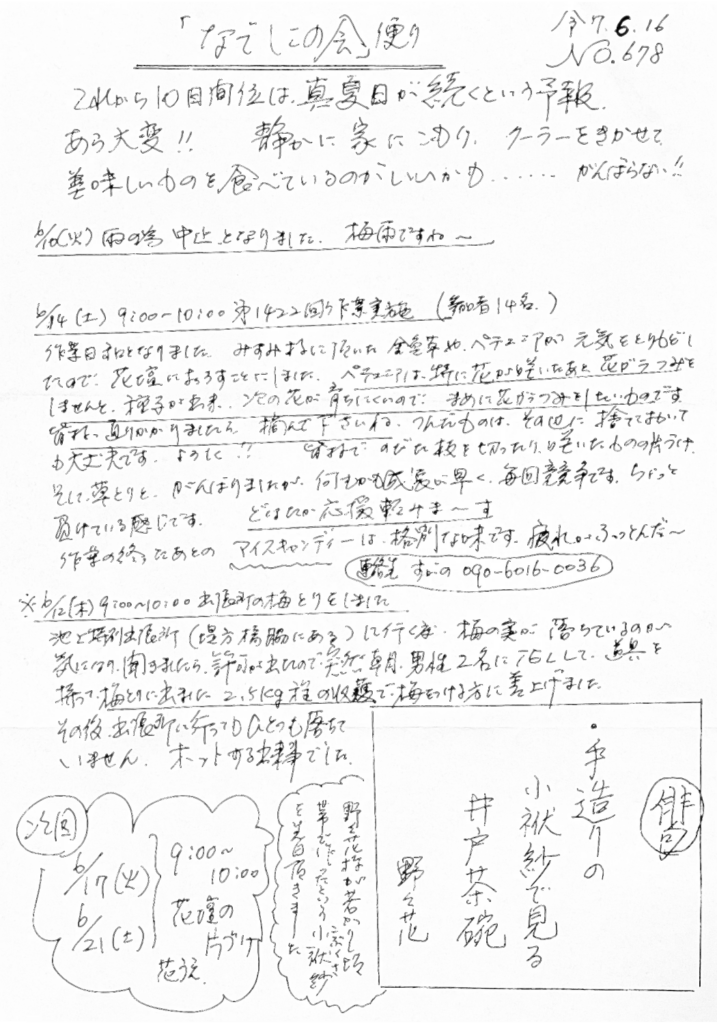 「なでしこの会」便り
令7.6.16
NO.678
これから10日間位は、真夏日が続くという予報、
あら大変!! 静かに家にこもり、クーラーをきかせて、
美味しいものを食べているのがいいかも…… がんばらない!!
6/10(火) 雨の為 中止となりました、梅雨ですね〜
6/14(土) 9:00〜10:00 第1422回作業実施 (参加者14名)
作業日和となりました。みすみ様に頂いた金魚草や、ペチュニアが元気をとりもどし
たので、花壇におろすことにしました。ペチュニアは、特に花が咲いたあと花がらつみを
しませんと、種子が出来、次の花が育ちにくいので、まめに花がらつみをしたいものです。
皆様、通りかかりましたら 摘んで下さいね。つんだものは、その辺に捨ててはいても
も大丈夫です。ようく!? 皆様で のびた枝を切ったり、咲いたものの片づけ、
そして草とりと、がんばりましたが、何もかも成長が早く、毎回競争です。ちょっと
負けている感じです。 どなたか応援頼みま〜す
作業の終ったあとの アイスキャンディーは、格別な味です。疲れがふっとんだ〜
連絡先 すがの 090-6016-0036
※6/12(木) 9:00〜10:00 出張所の梅とりをしました
池上特別出張所 (堤方橋脇にある) に行く度、梅の実が落ちているのが
気になり、聞きましたら、許可が出たので突然朝、男性2名にTELして、道具を
持って梅とりに出ました 2.5kg程の収穫で、梅をつける方に差上げました。
その後、出張所に行ってもひとつも落ちて
いません。ホットする出来事でした。
次回
6/17(火)
6/21(土)
9:00〜
10:00
花壇の
片づけ
花うえ
野々花様が若かりし頃
帯で作ったという小袱紗
こぶくさ
を先日頂きました
俳句
・手造りの
小袱紗で見る
井戸茶碗
野々花